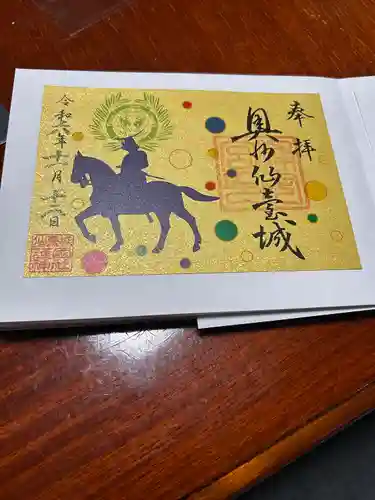 奉拝
奥州仙臺城
令和六年十一月十一日